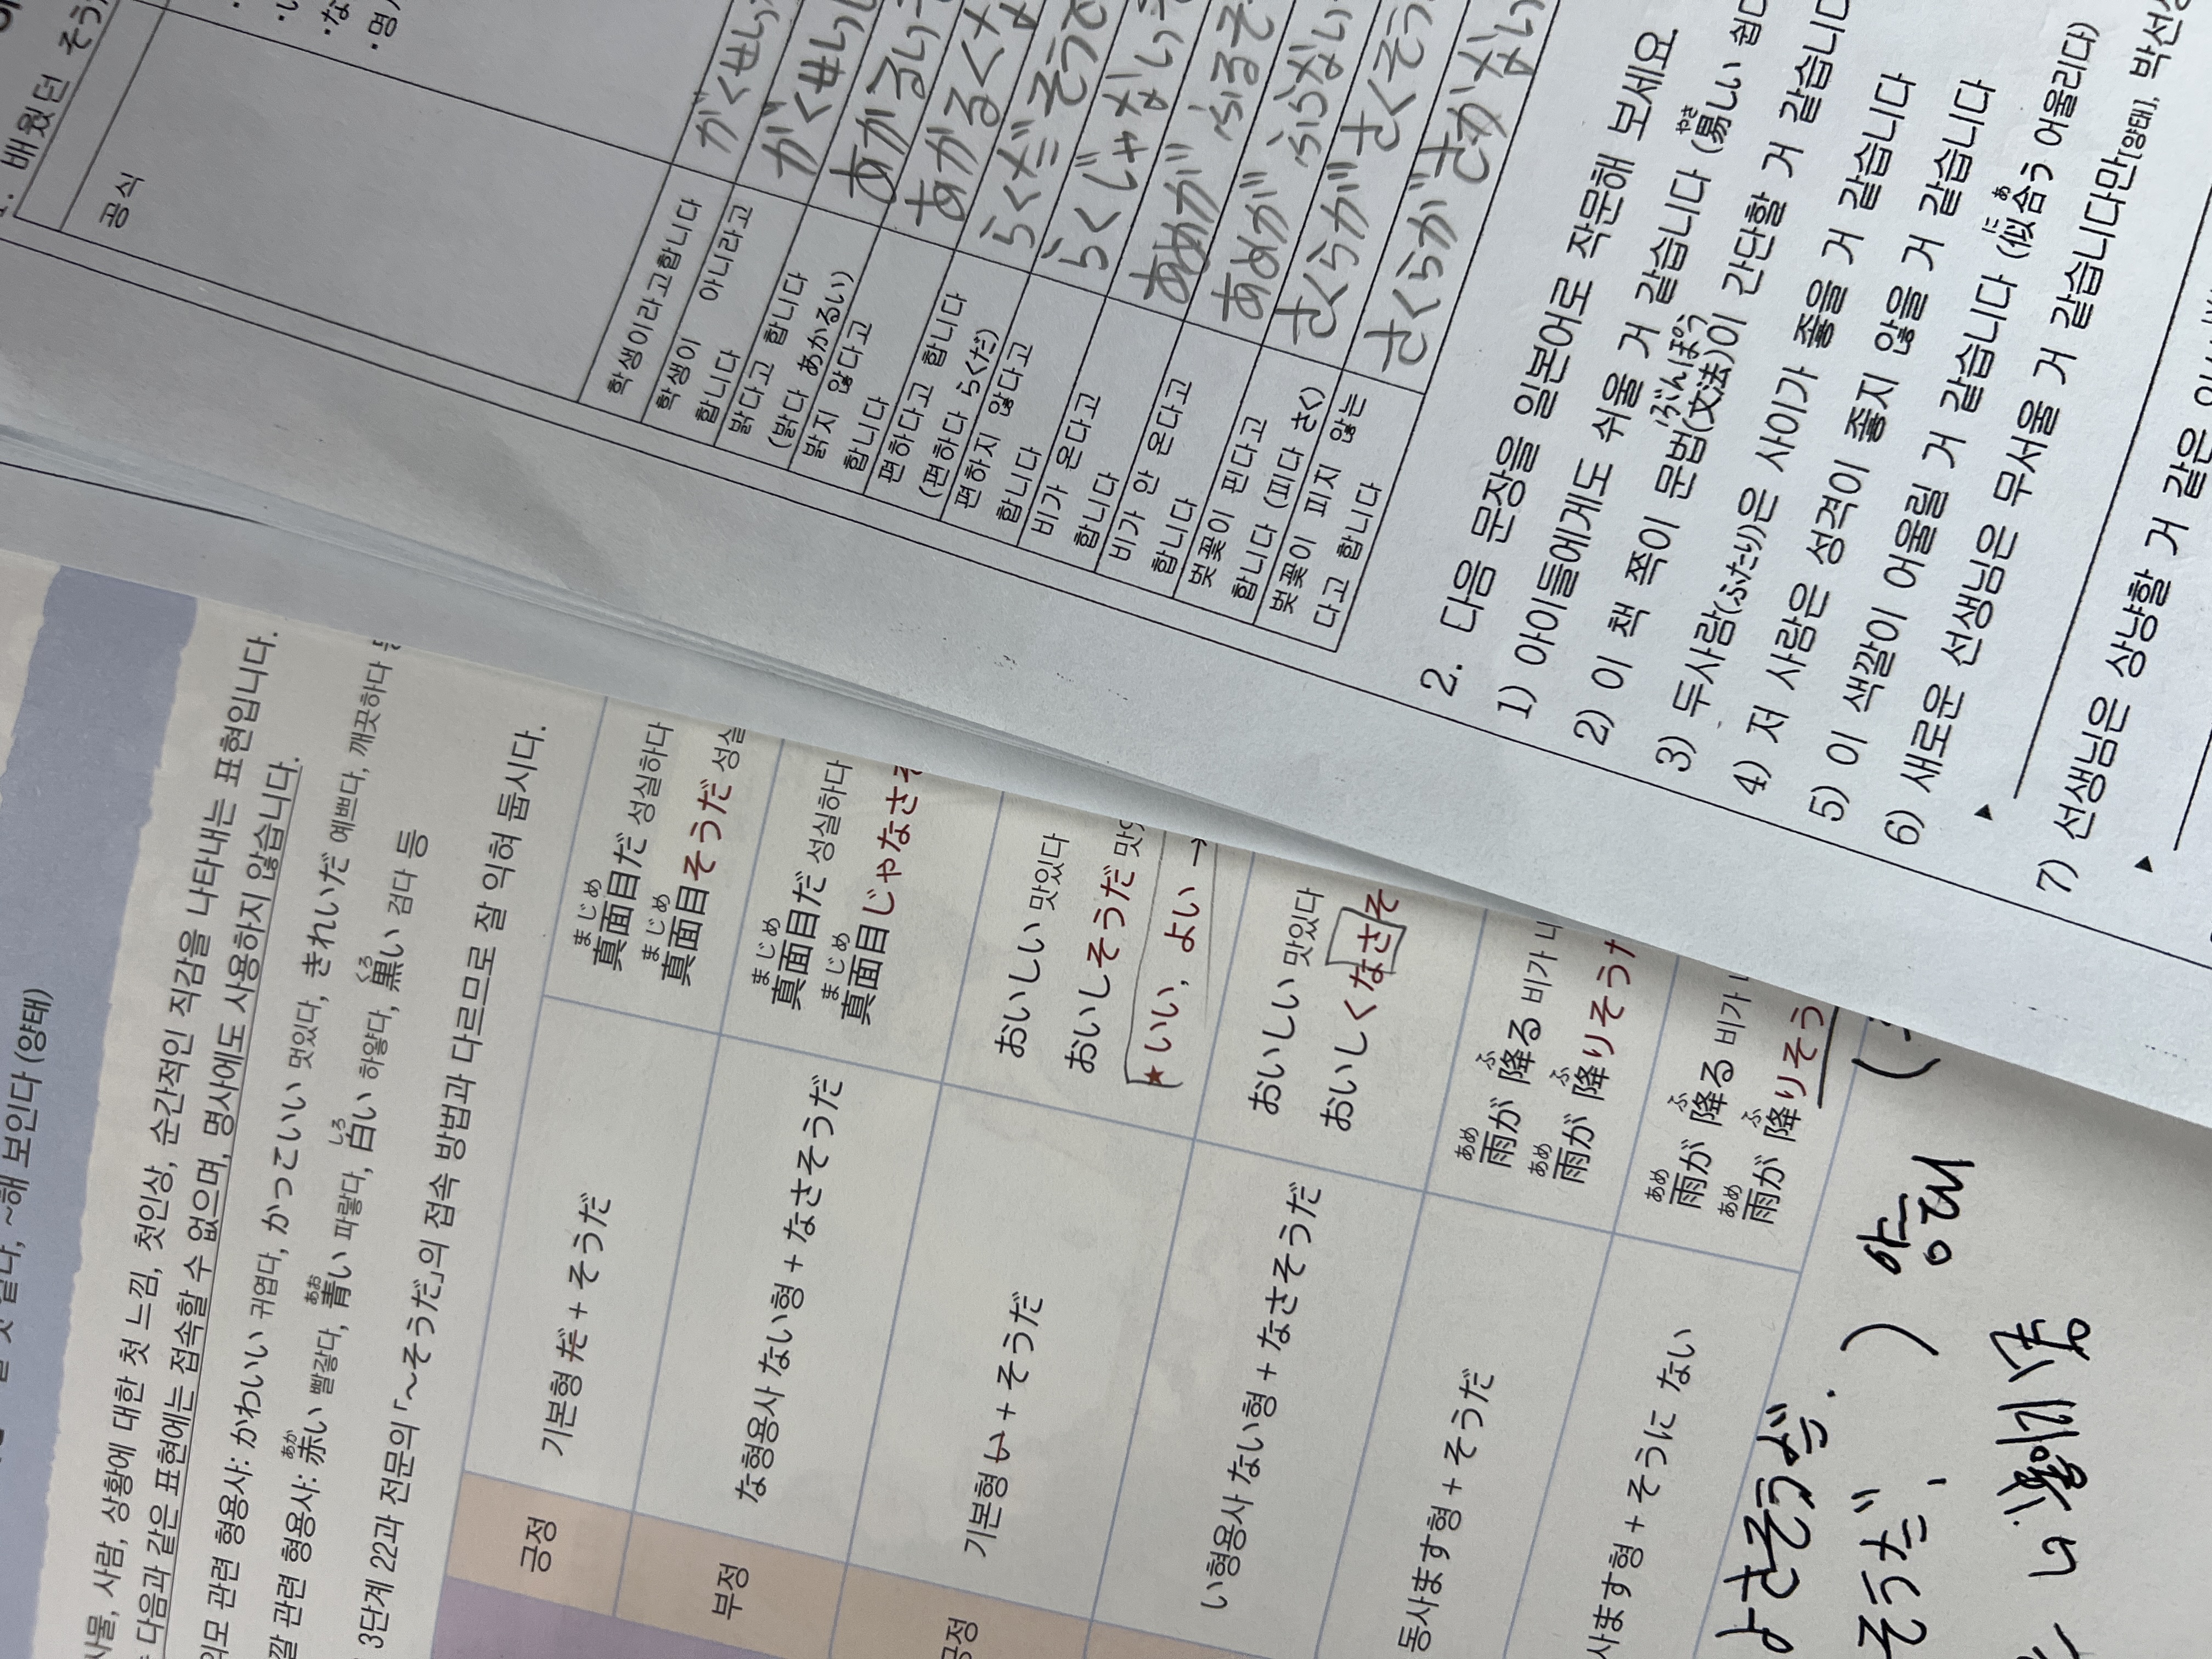 배웠던 そう
공식
학생이라고합니다
がくせい
학생이 아니라고
합니다
がくせい
밝다고 합니다
(밝다 あかるい)
あかるい
밝지 않다고
합니다
あかるく
편하다고 합니다
(편하다 らくだ)
らくだそうで
편하지 않다고
합니다
らくじゃない
비가 온다고
합니다
あめが ふるそ
비가 안 온다고
합니다
あめが ふらない
벚꽃이 핀다고
합니다 (피다 さく)
さくらが さくそう
벚꽃이 피지 않는
다고 합니다
さくらが さかない
2. 다음 문장을 일본어로 작문해 보세요
1) 아이들에게도 쉬울 거 같습니다 (易しい 쉽다
やさ
2) 이 책 쪽이 문법(文法)이 간단할 거 같습니다
ぶんぽう
3) 두사람(ふたり)은 사이가 좋을 거 같습니다
4) 저 사람은 성격이 좋지 않을 거 같습니다
5) 이 색깔이 어울릴 거 같습니다 (似合う 어울리다)
に あ
6) 새로운 선생님은 무서울 거 같습니다만[양태], 박선생
▶
7) 선생님은 상냥할 거 같은
▶
~해 보인다 (양태)
사물, 사람, 상황에 대한 첫 느낌, 첫인상, 순간적인 직감을 나타내는 표현입니다.
다음과 같은 표현에는 접속할 수 없으며, 명사에도 사용하지 않습니다.
외모 관련 형용사: かわいい 귀엽다, かっこいい 멋있다, きれいだ 예쁘다, 깨끗하다
あか あお しろ くろ
깔 관련 형용사: 赤い 빨갛다, 青い 파랗다, 白い 하얗다, 黒い 검다 등
3단계 22과 전문의 「~そうだ」의 접속 방법과 다르므로 잘 익혀 둡시다.
긍정
기본형 だ + そうだ
まじめ
真面目だ 성실하다
まじめ
真面目そうだ 성실
부정
な형용사 ない형 + なさそうだ
まじめ
真面目だ 성실하다
まじめ
真面目じゃなさそ
긍정
기본형 い + そうだ
おいしい 맛있다
おいしそうだ
★いい, よい →
い형용사 ない형 + なさそうだ
おいしい 맛있다
おいしくなさそ
동사ます형 + そうだ
あめ ふ
雨が 降る 비가
あめ ふ
雨が 降りそう
사ます형 + そうに ない
あめ ふ
雨が 降る 비가
あめ ふ
雨が 降りそう
よさそうだ.
そうだ. ) 양태